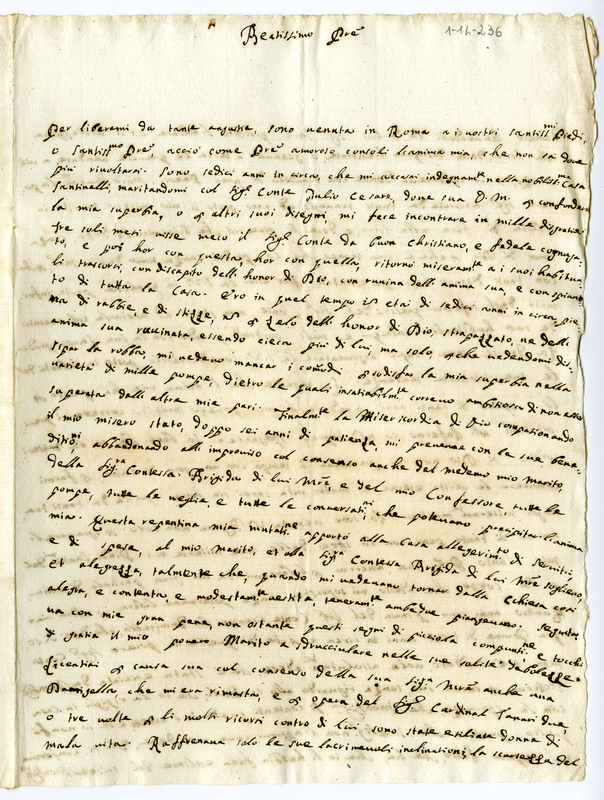 1-14-236
Beatissimo Pre
Per liberarmi da tante angustie, sono venuta in Roma a i vostri santissmi Piedi,
o Santissmo Pre, acciò come Pre amoroso consoli l'anima mia, che non sà dove
più rivoltarsi. Sono sedici anni in circa, che mi accasai indegnamte nella nobilissma Casa
Santinelli, maritandomi col Sigr Conte Giulio Cesare, dove sua D. M. p confondere
la mia superbia, o p altri suoi disegni, mi fece incontrare in mille disgratie.
Tre soli mesi visse meco il Sigr Conte da buon Christiano, e fedele
e poi hor con questa, hor con quella, ritornò miseramte a i suoi habituali
trascorsi, con discapito dell honor di Dio, con ruuina dell anima sua, e con
to di tutta la Casa. Ero in quel tempo in età di sedici anni in circa, pie
na di rabbie, e di stizze, nò p zelo dell honor di Dio, strapazzato, ne dell
anima sua ruuinata, essendo cieca più di lui, ma solo, pche vedendomi dis
sipar la robba, mi vedevo mancar i comodi p sodisfar la mia superbia nella
varietà di mille pompe, dietro le quali insatiabilmte correvo ambitiosa di non esser
superata dall altre mie pari. Finalmte la Misericordia di Dio compationando
il mio misero stato, doppo sei anni di patienza, mi prevenne con le sue bene
ditioni, abbandonando all improviso col consenso anche del medemo mio marito
della Sigra Contessa Brigida di lui Mre, e del mio Confessore, tutte le
pompe, tutte le veglie e tutte le conversatni, che potevano precipitar l'anima
mia. Questa repentina mia mutatne apportò alla Casa allegerimto di servitù
e di spese, al mio marito, et alla Sigra Contessa Brigida di lui Mre
et alegrezza, talmente che, quando mi vedevano tornar dalla Chiesa così
alegra, e contenta e modestamte vestita, teneramte ambedue piangevano.
va con mie gran pene, non ostante questi segni di picciola compuntne, e tocchi
di gratia il mio povero Marito a sdrucciolare nelle sue solite debolezze.
Licentiai p causa sua col consenso della sua Sigra Mre anche una
Damigella, che mi era rimasta, e p opera del Sigr Cardinal Fanari due,
o tre volte p li molti ricorsi contro di lui sono state esiliate donne di
mala vita. Raffrenava solo le sue lacrimevoli inclinationi, la scarsezza del